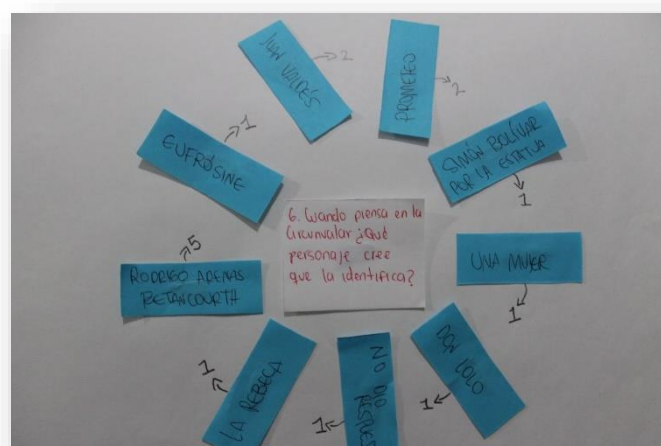 6. Cuando piensa en la
Circunvalar ¿Qué
personaje cree
que la identifica?
JUAN VALDÉS
2
PROMETEO
2
SIMÓN BOLÍVAR
POR LA ESTATUA
1
UNA MUJER
1
DON LOLO
1
NO DIO
1
LA REBECA
1
RODRIGO ARENAS
BETANCOURTH
5
EUFRÓSINE
1